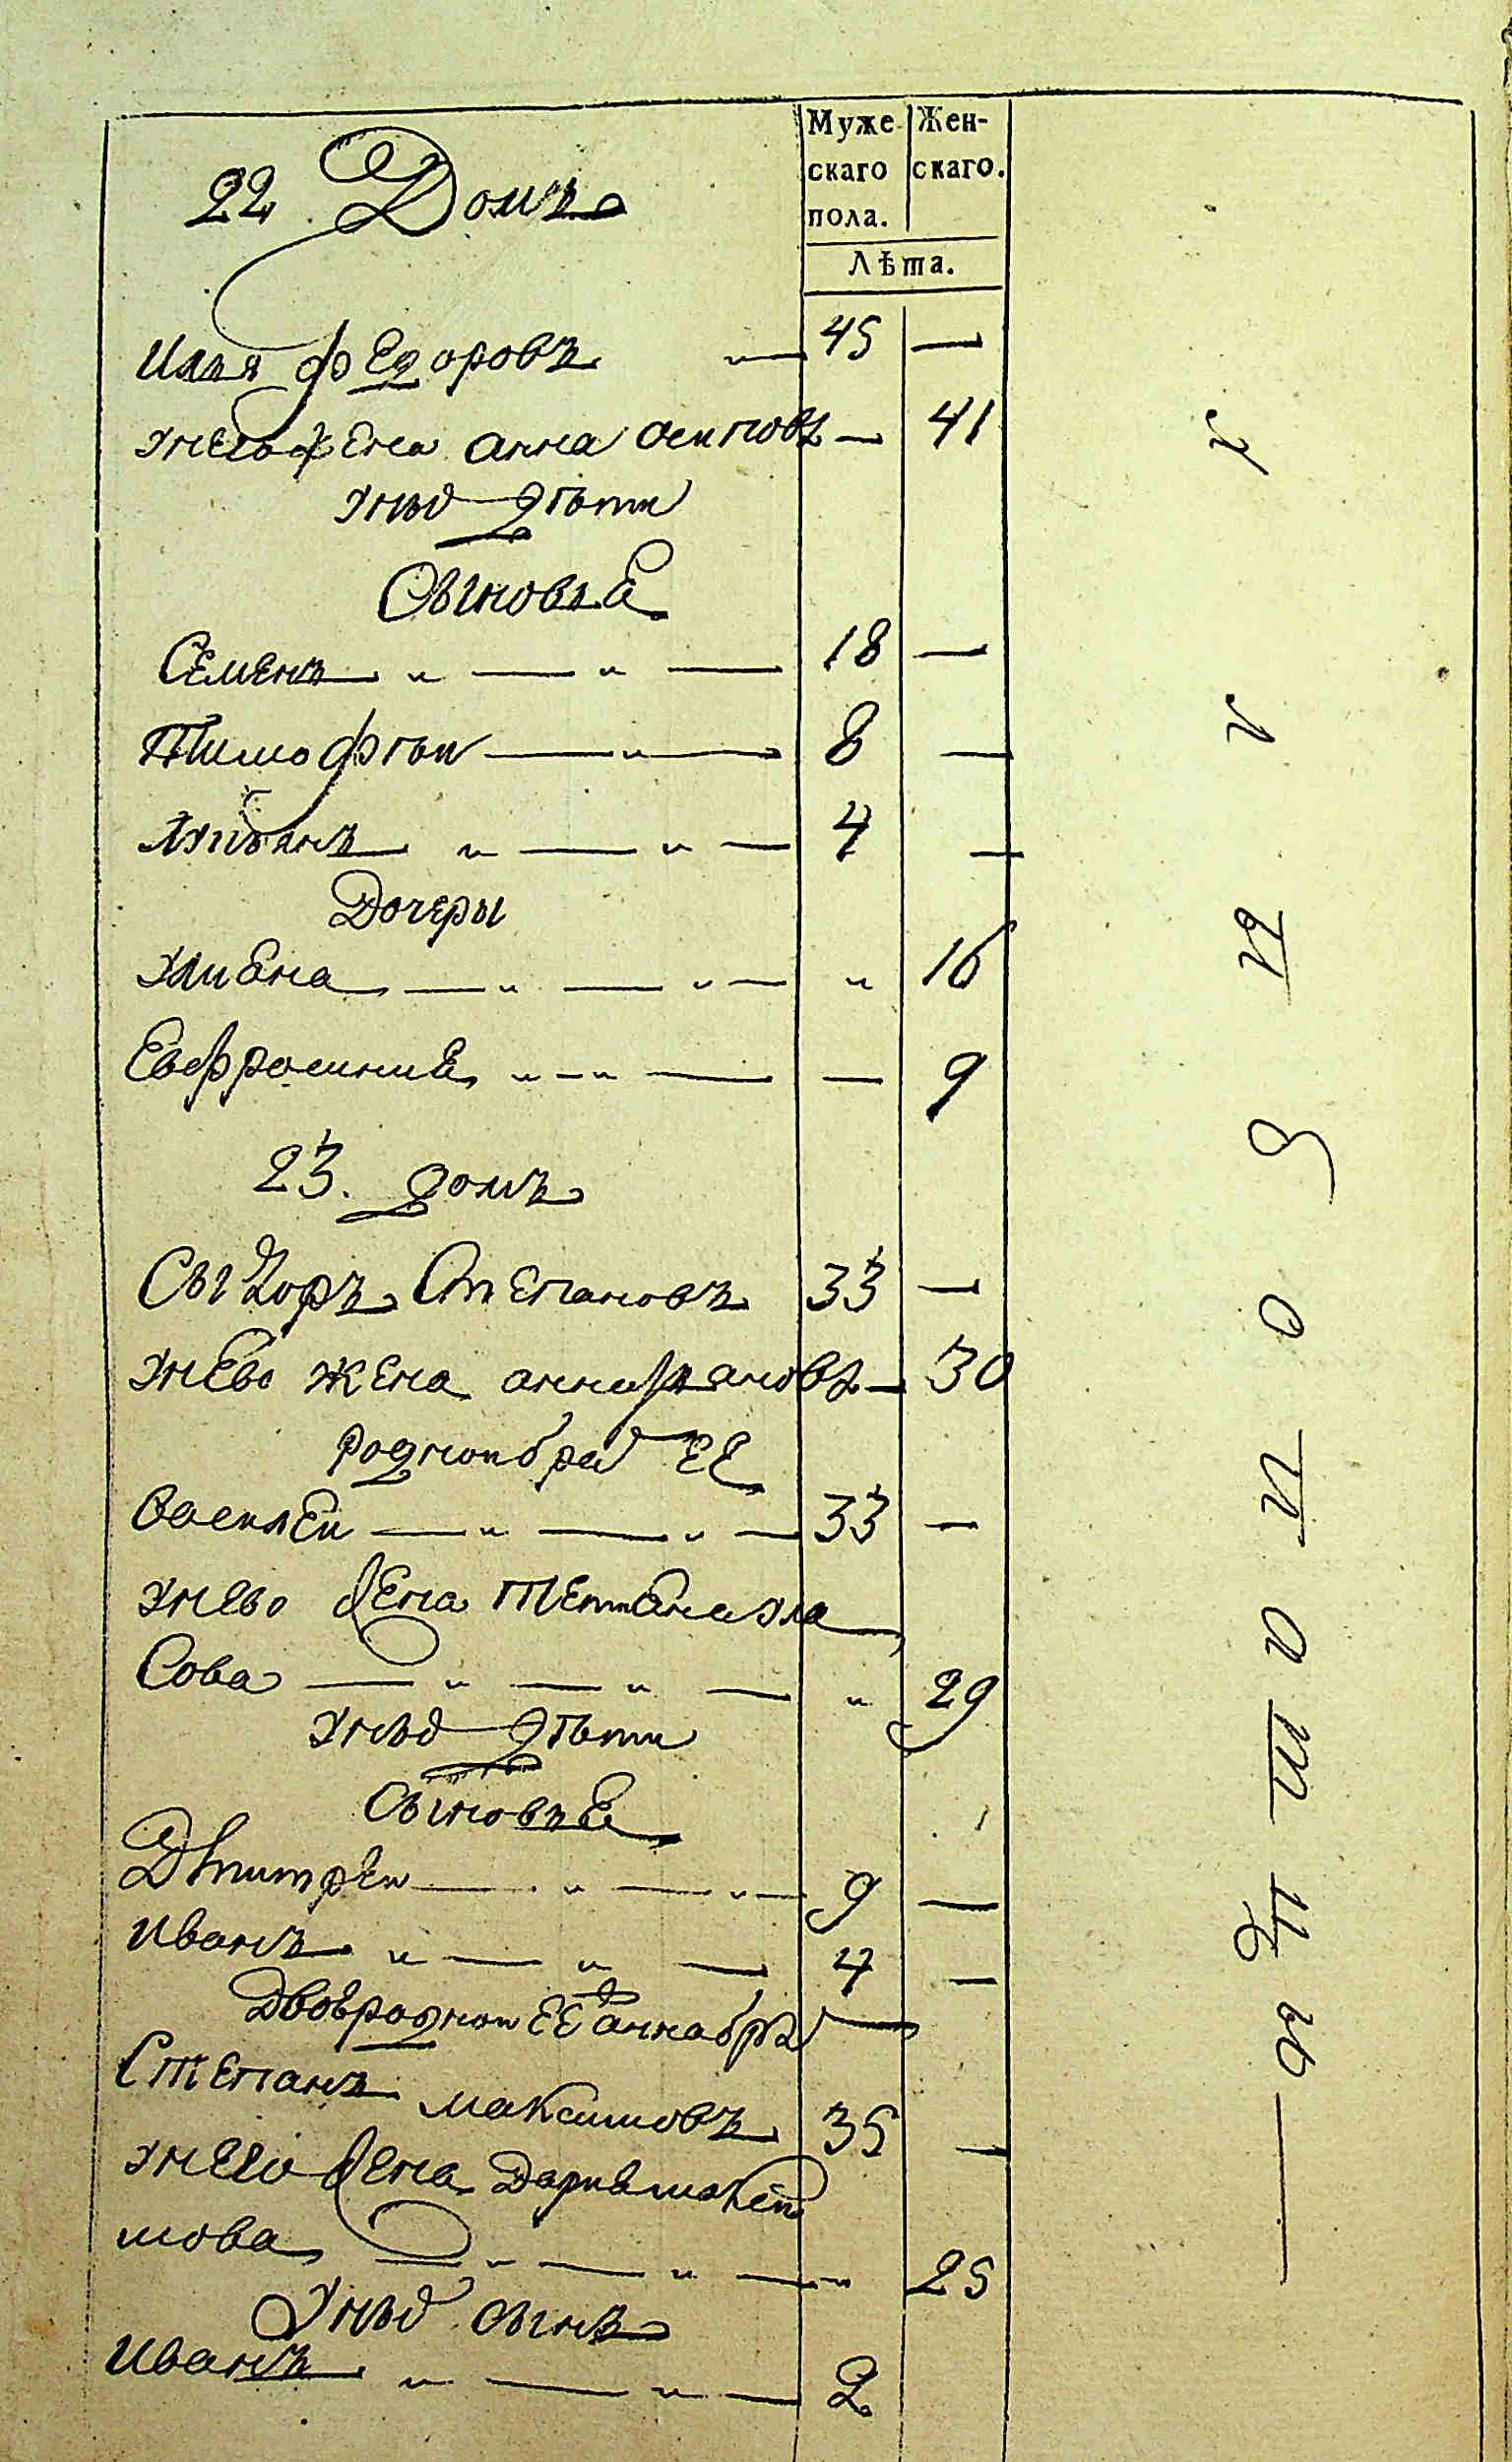 Муже Жен-
скаго скаго.
пола.
Лѣта.
22 Домъ
Илья Федоровъ 45 —
унего жена анна осипова — 41
унихъ дѣти
Сыновья
Семенъ 18 —
Тимофѣи 8 —
4 —
Дочеры
Улиена 16
Евфросиние — 9
23. домъ
Сыдоръ Степановъ 33 —
унево жена анна — 30
роднои братъ ее
Василеи 33 —
унево жена
сова 29
унихъ дѣти
Сыновье
Дмитреи 9 —
Иванъ 4 —
Двоюроднои ее анна братъ
Степанъ максимовъ 35 —
унего жена
мова 25
Унихъ сынъ
Иванъ 2